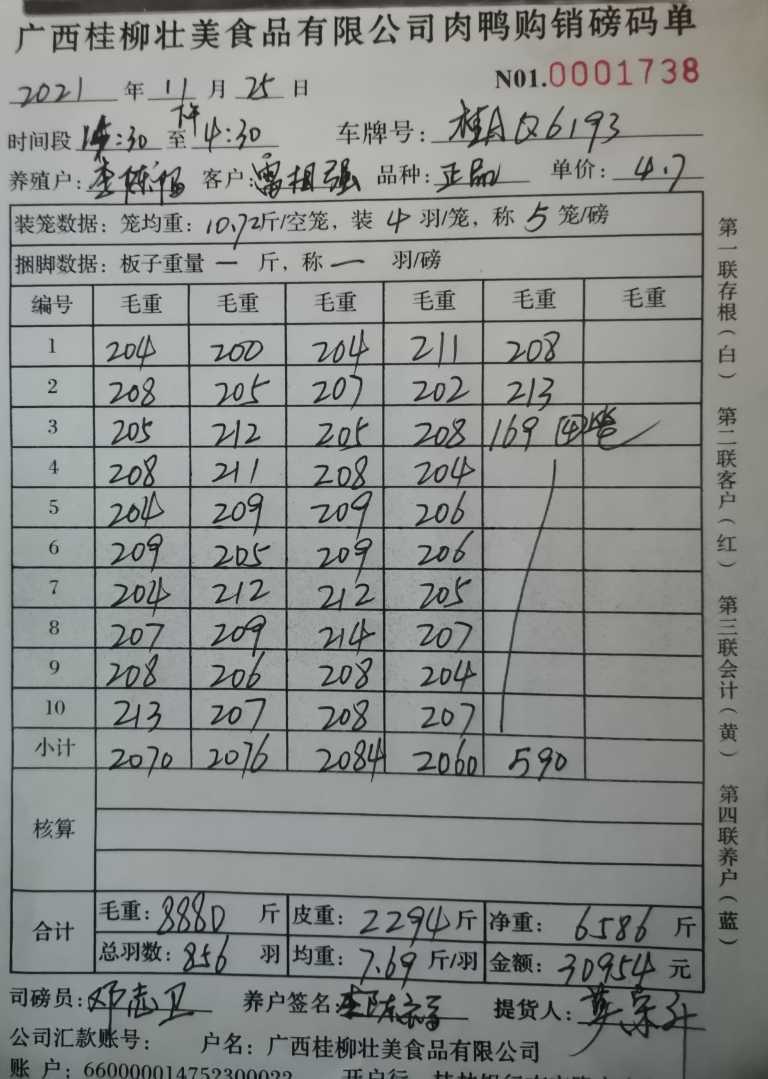 广西桂柳壮美食品有限公司肉鸭购销磅码单
2021 年 11 月 25 日 N01.0001738
时间段 :30 至 4:30 车牌号: 桂A Q6193
养殖户: 客户: 雷相强 品种: 正品 单价: 4.7
装笼数据: 笼均重: 10.72斤/空笼, 装 4 羽/笼, 称 5 笼/磅
捆脚数据: 板子重量 一 斤, 称 一 羽/磅
编号 毛重 毛重 毛重 毛重 毛重 毛重
1 204 200 204 211 208
2 208 205 207 202 213
3 205 212 205 208 169 ④笼
4 208 211 208 204
5 204 209 209 206
6 209 205 209 206
7 204 212 212 205
8 207 209 214 207
9 208 206 208 204
10 213 207 208 207
小计 2070 2076 2084 2060 590
核算
合计 毛重: 8880 斤 皮重: 2294 斤 净重: 6586 斤
总羽数: 856 羽 均重: 7.69 斤/羽 金额: 30954 元
司磅员: 邓志卫 养户签名: 提货人:
公司汇款账号: 户名: 广西桂柳壮美食品有限公司
账 户: 660000014752300022 开户行
第一联存根(白) 第二联客户(红) 第三联会计(黄) 第四联养户(蓝)